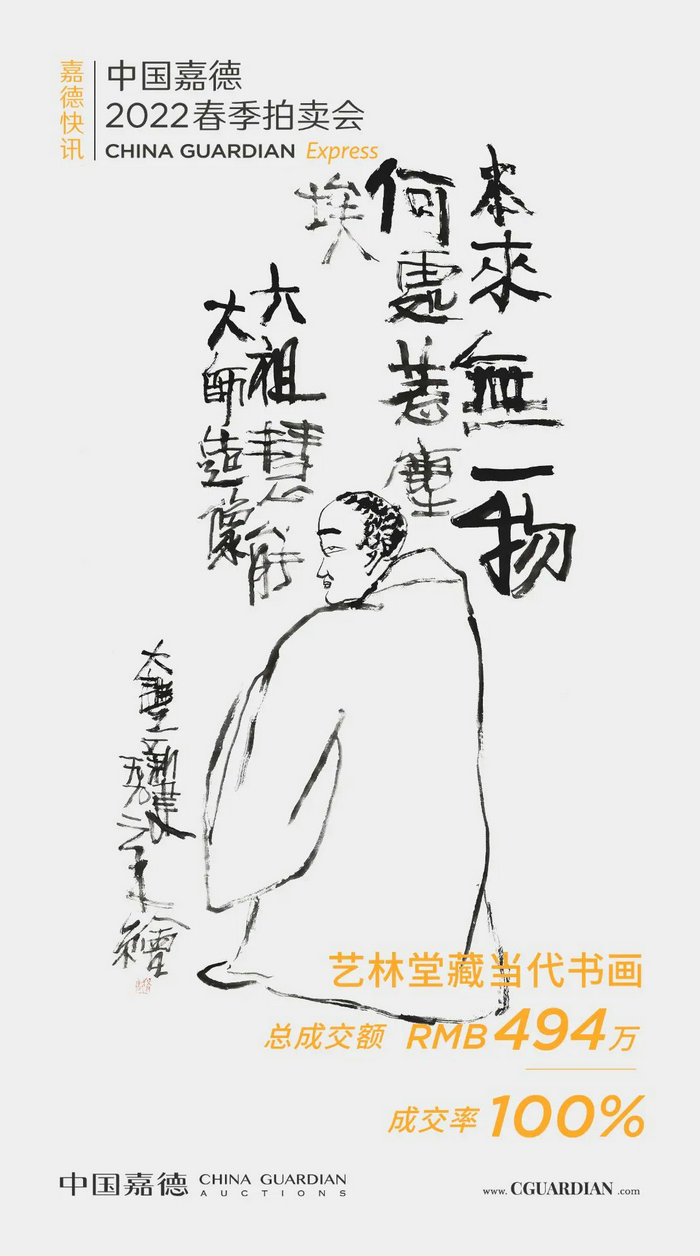 嘉德快讯
中国嘉德
2022春季拍卖会
CHINA GUARDIAN Express
本來無一物
何處惹塵
埃
六祖慧能
大師造像
艺林堂藏当代书画
总成交额 RMB494万
成交率100%
中国嘉德 CHINA GUARDIAN
AUCTIONS
www.CGUARDIAN.com